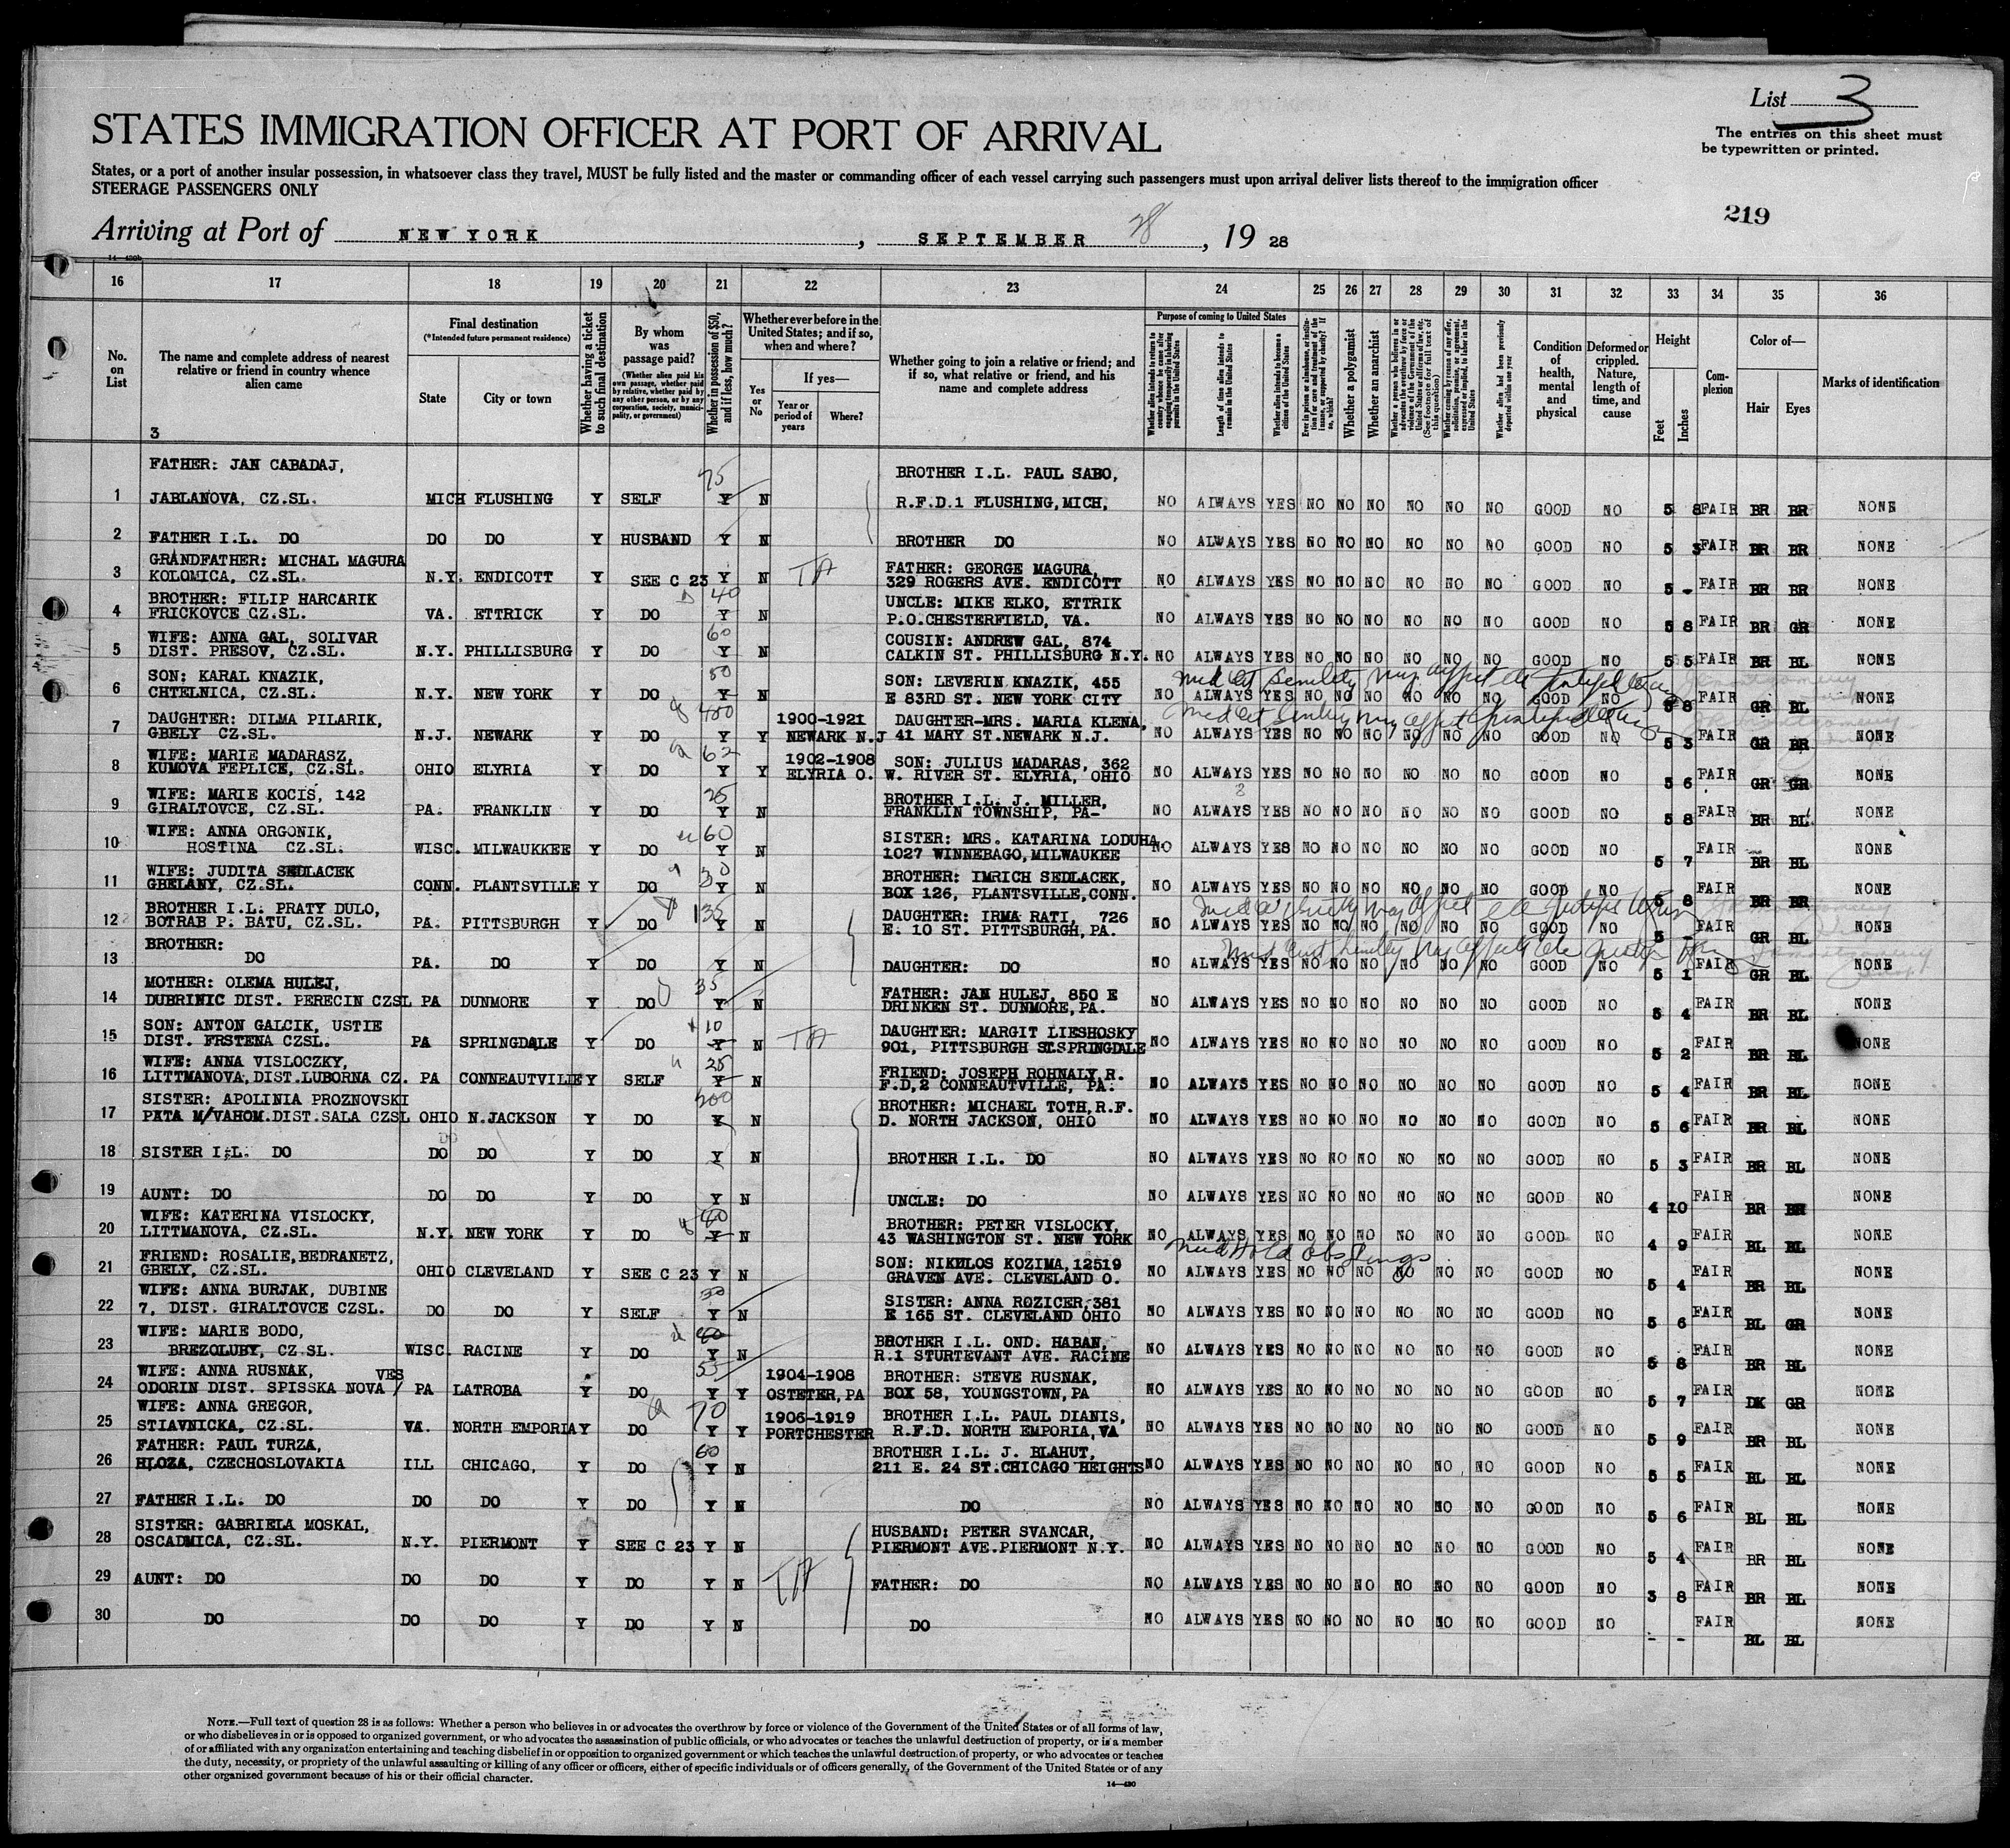 List 3
The entries on this sheet must
be typewritten or printed.
STATES IMMIGRATION OFFICER AT PORT OF ARRIVAL
States, or a port of another insular possession, in whatsoever class they travel, MUST be fully listed and the master or commanding officer of each vessel carrying such passengers must upon arrival deliver lists thereof to the immigration officer
STEERAGE PASSENGERS ONLY
219
Arriving at Port of NEW YORK, SEPTEMBER 28, 19 28
16 17 18 19 20 21 22 23 24 25 26 27 28 29 30 31 32 33 34 35 36
No. on List
The name and complete address of nearest relative or friend in country whence alien came
3
Final destination
(*Intended future permanent residence)
State
City or town
Whether having a ticket to such final destination
By whom was passage paid?
(Whether alien paid his own passage, whether paid by relative, whether paid by any other person, or by any corporation, society, municipality, or government)
Whether in possession of $50, and if less, how much?
Whether ever before in the United States; and if so, when and where?
Yes or No
If yes—
Year or period of years
Where?
Whether going to join a relative or friend; and if so, what relative or friend, and his name and complete address
Purpose of coming to United States
Whether alien intends to return to country whence he came after engaging temporarily in laboring pursuits in the United States
Length of time alien intends to remain in the United States
Whether alien intends to become a citizen of the United States
Ever in prison or almshouse, or institution for care and treatment of the insane, or supported by charity? If so, which?
Whether a polygamist
Whether an anarchist
Whether a person who believes in or advocates the overthrow by force or violence of the Government of the United States or all forms of law, etc. (See footnote for full text of this question)
Whether coming by reason of any offer, solicitation, promise, or agreement, expressed or implied, to labor in the United States
Whether alien had been previously deported within one year
Condition of health, mental and physical
Deformed or crippled. Nature, length of time, and cause
Height
Feet
Inches
Complexion
Color of—
Hair
Eyes
Marks of identification
FATHER: JAN CABADAJ, BROTHER I.L. PAUL SABO,
1 JABLANOVA, CZ.SL. MICH FLUSHING Y SELF 75 Y N R.F.D.1 FLUSHING, MICH, NO ALWAYS YES NO NO NO NO NO NO GOOD NO 5 8 FAIR BR BR NONE
2 FATHER I.L. DO DO DO Y HUSBAND Y N BROTHER DO NO ALWAYS YES NO NO NO NO NO NO GOOD NO 5 3 FAIR BR BR NONE
GRANDFATHER: MICHAL MAGURA FATHER: GEORGE MAGURA,
3 KOLOMICA, CZ.SL. N.Y. ENDICOTT Y SEE C 23 Y N TA 329 ROGERS AVE. ENDICOTT NO ALWAYS YES NO NO NO NO NO NO GOOD NO 5 - FAIR BR BR NONE
BROTHER: FILIP HARCARIK 40 UNCLE: MIKE ELKO, ETTRIK
4 FRICKOVCE CZ.SL. VA. ETTRICK Y DO Y N P.O.CHESTERFIELD, VA. NO ALWAYS YES NO NO NO NO NO NO GOOD NO 5 8 FAIR BR GR NONE
WIFE: ANNA GAL, SOLIVAR 60 COUSIN: ANDREW GAL, 874
5 DIST. PRESOV, CZ.SL. N.Y. PHILLISBURG Y DO Y N CALKIN ST. PHILLISBURG N.Y. NO ALWAYS YES NO NO NO NO NO NO GOOD NO 5 5 FAIR BR BL NONE
SON: KARAL KNAZIK, 50 SON: LEVERIN KNAZIK, 455
6 CHTELNICA, CZ.SL. N.Y. NEW YORK Y DO Y N E 83RD ST. NEW YORK CITY NO ALWAYS YES NO NO NO NO NO NO GOOD NO 5 8 FAIR GR BL NONE
DAUGHTER: DILMA PILARIK, 400 1900-1921 DAUGHTER-MRS. MARIA KLENA,
7 GBELY CZ.SL. N.J. NEWARK Y DO Y Y NEWARK N.J 41 MARY ST.NEWARK N.J. NO ALWAYS YES NO NO NO NO NO NO GOOD NO 5 3 FAIR GR BR NONE
WIFE: MARIE MADARASZ, 62 1902-1908 SON: JULIUS MADARAS, 362
8 KUMOVA FEPLICE, CZ.SL. OHIO ELYRIA Y DO Y Y ELYRIA O. W. RIVER ST. ELYRIA, OHIO NO ALWAYS YES NO NO NO NO NO NO GOOD NO 5 6 FAIR GR GR NONE
WIFE: MARIE KOCIS, 142 25 BROTHER I.L. J. MILLER,
9 GIRALTOVCE, CZ.SL. PA. FRANKLIN Y DO Y N FRANKLIN TOWNSHIP, PA- NO ALWAYS YES NO NO NO NO NO NO GOOD NO 5 8 FAIR BR BL NONE
WIFE: ANNA ORGONIK, 60 SISTER: MRS. KATARINA LODUHA
10 HOSTINA CZ.SL. WISC. MILWAUKKEE Y DO Y N 1027 WINNEBAGO, MILWAUKEE NO ALWAYS YES NO NO NO NO NO NO GOOD NO 5 7 FAIR BR BL NONE
WIFE: JUDITA SEDLACEK 30 BROTHER: IMRICH SEDLACEK,
11 GBELANY, CZ.SL. CONN. PLANTSVILLE Y DO Y N BOX 126, PLANTSVILLE, CONN. NO ALWAYS YES NO NO NO NO NO NO GOOD NO 5 8 FAIR BR BR NONE
BROTHER I.L: PRATY DULO, 135 DAUGHTER: IRMA RATI, 726
12 BOTRAB P. BATU, CZ.SL. PA. PITTSBURGH Y DO Y N E. 10 ST. PITTSBURGH, PA. NO ALWAYS YES NO NO NO NO NO NO GOOD NO 5 - FAIR GR BL NONE
BROTHER:
13 DO PA. DO Y DO Y N DAUGHTER: DO NO ALWAYS YES NO NO NO NO NO NO GOOD NO 5 1 FAIR GR BL NONE
MOTHER: OLEMA HULEJ, 35 FATHER: JAN HULEJ, 850 E
14 DUBRINIC DIST. PERECIN CZSL PA DUNMORE Y DO Y N DRINKEN ST. DUNMORE, PA. NO ALWAYS YES NO NO NO NO NO NO GOOD NO 5 4 FAIR BR BL NONE
SON: ANTON GALCIK, USTIE 10 DAUGHTER: MARGIT LIESHOSKY
15 DIST. FRSTENA CZSL. PA SPRINGDALE Y DO Y N TA 901, PITTSBURGH ST.SPRINGDALE NO ALWAYS YES NO NO NO NO NO NO GOOD NO 5 2 FAIR BR BL NONE
WIFE: ANNA VISLOCZKY, 25 FRIEND: JOSEPH ROHNALY R.
16 LITTMANOVA, DIST.LUBORNA CZ. PA CONNEAUTVILIE Y SELF Y N F.D,2 CONNEAUTVILLE, PA. NO ALWAYS YES NO NO NO NO NO NO GOOD NO 5 4 FAIR BR BL NONE
SISTER: APOLINIA PROZNOVSKI 200 BROTHER: MICHAEL TOTH, R.F.
17 PATA M/VAHOM.DIST.SALA CZSL OHIO N.JACKSON Y DO Y N D. NORTH JACKSON, OHIO NO ALWAYS YES NO NO NO NO NO NO GOOD NO 5 6 FAIR BR BL NONE
18 SISTER I.L. DO DO DO Y DO Y N BROTHER I.L. DO NO ALWAYS YES NO NO NO NO NO NO GOOD NO 5 3 FAIR BR BL NONE
19 AUNT: DO DO DO Y DO Y N UNCLE: DO NO ALWAYS YES NO NO NO NO NO NO GOOD NO 4 10 FAIR BR BR NONE
WIFE: KATERINA VISLOCKY, BROTHER: PETER VISLOCKY,
20 LITTMANOVA, CZ.SL. N.Y. NEW YORK Y DO Y N 43 WASHINGTON ST. NEW YORK NO ALWAYS YES NO NO NO NO NO NO GOOD NO 4 9 FAIR BL BL NONE
FRIEND: ROSALIE, BEDRANETZ, SON: NIKOLOS KOZIMA, 12519
21 GBELY, CZ.SL. OHIO CLEVELAND Y SEE C 23 Y N GRAVEN AVE. CLEVELAND O. NO ALWAYS YES NO NO NO NO NO NO GOOD NO 5 4 FAIR BR BL NONE
WIFE: ANNA BURJAK, DUBINE 30 SISTER: ANNA ROZICER, 381
22 7, DIST. GIRALTOVCE CZSL. DO DO Y SELF Y N E 165 ST. CLEVELAND OHIO NO ALWAYS YES NO NO NO NO NO NO GOOD NO 5 6 FAIR BL GR NONE
WIFE: MARIE BODO, BROTHER I.L. OND. HABAN,
23 BREZOLUBY, CZ.SL. WISC. RACINE Y DO Y N R.1 STURTEVANT AVE. RACINE NO ALWAYS YES NO NO NO NO NO NO GOOD NO 5 8 FAIR BR BL NONE
WIFE: ANNA RUSNAK, VES 55 1904-1908 BROTHER: STEVE RUSNAK,
24 ODORIN DIST. SPISSKA NOVA / PA LATROBA Y DO Y Y OSTETER, PA BOX 58, YOUNGSTOWN, PA NO ALWAYS YES NO NO NO NO NO NO GOOD NO 5 7 FAIR DK GR NONE
WIFE: ANNA GREGOR, 70 1906-1919 BROTHER I.L. PAUL DIANIS,
25 STIAVNICKA, CZ.SL. VA. NORTH EMPORIA Y DO Y Y PORTCHESTER R.F.D. NORTH EMPORIA, VA NO ALWAYS YES NO NO NO NO NO NO GOOD NO 5 9 FAIR BR BL NONE
FATHER: PAUL TURZA, 60 BROTHER I.L. J. BLAHUT,
26 HLOZA, CZECHOSLOVAKIA ILL CHICAGO, Y DO Y N 211 E. 24 ST.CHICAGO HEIGHTS NO ALWAYS YES NO NO NO NO NO NO GOOD NO 5 5 FAIR BL BL NONE
27 FATHER I.L. DO DO DO Y DO Y N DO NO ALWAYS YES NO NO NO NO NO NO GOOD NO 5 6 FAIR BL BL NONE
SISTER: GABRIELA MOSKAL, HUSBAND: PETER SVANCAR,
28 OSCADMICA, CZ.SL. N.Y. PIERMONT Y SEE C 23 Y N PIERMONT AVE.PIERMONT N.Y. NO ALWAYS YES NO NO NO NO NO NO GOOD NO 5 4 FAIR BR BL NONE
29 AUNT: DO DO DO Y DO Y N TA FATHER: DO NO ALWAYS YES NO NO NO NO NO NO GOOD NO 3 8 FAIR BR BL NONE
30 DO DO DO Y DO Y N DO NO ALWAYS YES NO NO NO NO NO NO GOOD NO - - FAIR BL BL NONE
NOTE.—Full text of question 28 is as follows: Whether a person who believes in or advocates the overthrow by force or violence of the Government of the United States or of all forms of law,
or who disbelieves in or is opposed to organized government, or who advocates the assassination of public officials, or who advocates or teaches the unlawful destruction of property, or is a member
of or affiliated with any organization entertaining and teaching disbelief in or opposition to organized government or which teaches the unlawful destruction of property, or who advocates or teaches
the duty, necessity, or propriety of the unlawful assaulting or killing of any officer or officers, either of specific individuals or of officers generally, of the Government of the United States or of any
other organized government because of his or their official character.
14—430